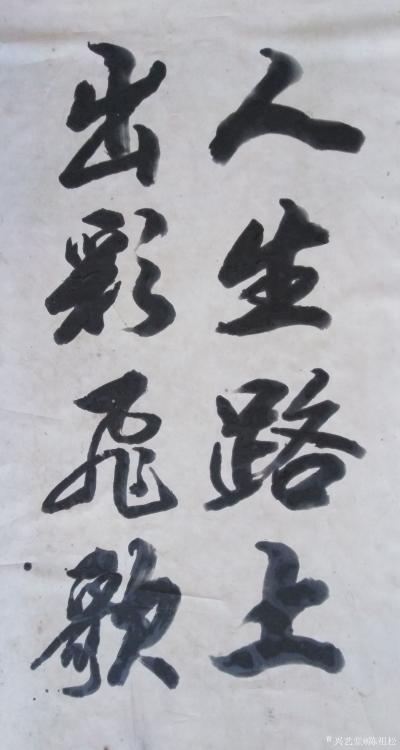 人生路上
出彩飞歌
兴艺堂@陈祖松